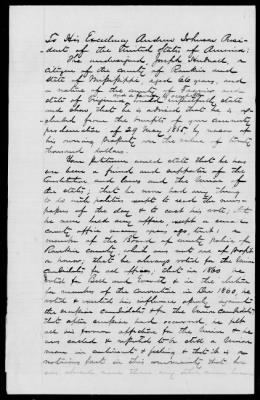 To His Excellency Andrew Johnson Presi-
dent of the United States of America:
The undersigned, Joseph a
citizen of the county of Rankin and
State of Mississippi, aged 66 years, and
a native of the county of and
State of Virginia, would respectfully state
and show that he is advised that he is ex-
cluded from the benefits of your amnesty
proclamation of 29 May 1865 by reason of
his owning property over the value of twenty
thousand dollars.
Your petitioner would state that he was
ever been a friend and supporter of the
Constitution and laws and the Union of
the states; that he never had any thing
to do with politics except to read the news-
papers of the day & to cast his vote, that
he never held any office except a small
county office many years ago, to wit: a
member of the Board of county police of
Rankin county which was not of profit
or honor, that he always voted for the Union
candidates for all offices; that in 1860 he
voted for Bell and Everett & in the election
for members of the convention in Dec 1860, he
voted & used his influence openly against
the secession candidates & for the Union candidates
that after secession had occurred, he felt
all his former affection for the Union & he
was called & reputed to be still a Union
man in sentiment & feeling & that it is a
notorious fact in this community that he